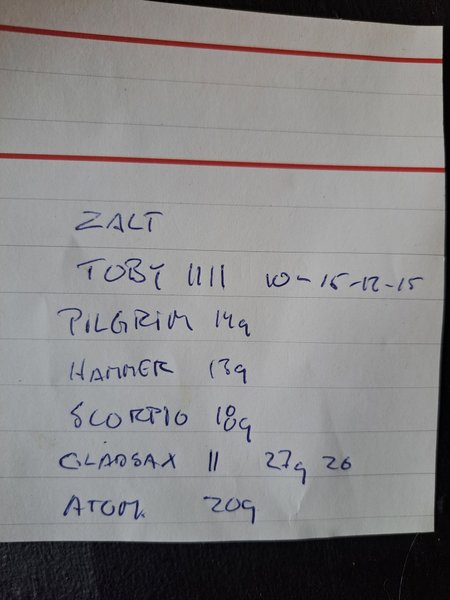 ZALT
TOBY IIII 10-15-12-15
PILGRIM 14g
HAMMER 13g
SCORPIO 18g
GLADSAX II 27g 26
ATOM. 20g